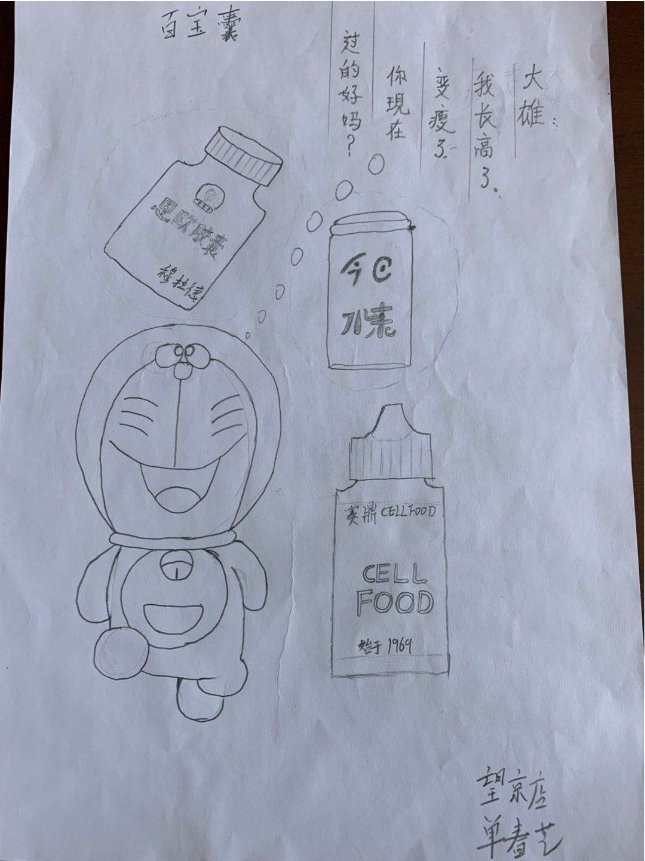 百宝囊
大雄：
我长高了.
变瘦了.
你現在
过的好吗？
恩欧胶囊
穆拉德
今日
水素
赛鼎 CELLFOOD
CELL
FOOD
始于1969
望京店
单春芝